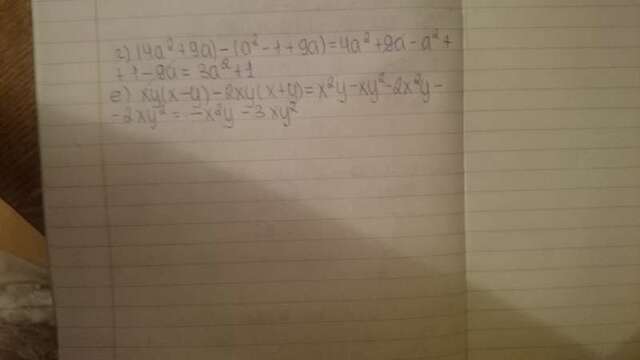 г) (4a² + 9a) - (a² - 1 + 9a) = 4a² + 9a - a² +
+ 1 - 9a = 3a² + 1
е) xy(x - y) - 2xy(x + y) = x²y - xy² - 2x²y -
- 2xy² = -x²y - 3xy²